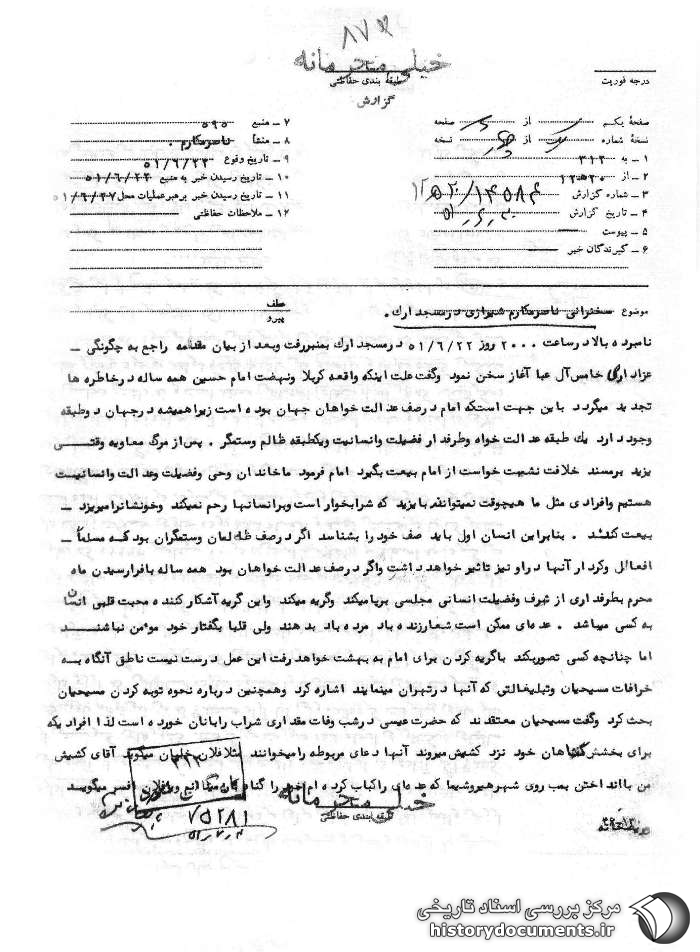 ۸۷۲
خیلی محرمانه
طبقه بندی حفاظتی
گزارش
درجه فوریت
صفحهٔ یکم از صفحه
نسخهٔ شماره از نسخه
۱ ـ به ۳۱۲
۲ ـ از ۲۰ﻫ۱۲
۳ ـ شماره گزارش ۱۴۵۸۴/۲۰ﻫ۱۲
۴ ـ تاریخ گزارش
۵ ـ پیوست
۶ ـ گیرندگان خبر
۷ ـ منبع ۵۹۵
۸ ـ منشأ ناصرمکارم .
۹ ـ تاریخ وقوع ۵۱/۶/۲۲
۱۰ ـ تاریخ رسیدن خبر به منبع ۵۱/۶/۲۲
۱۱ ـ تاریخ رسیدن خبر برهبرعملیات محل ۵۱/۶/۲۷
۱۲ ـ ملاحظات حفاظتی
موضوع سخنرانی ناصرمکارم شیرازی درمسجد ارك .
عطف
پیرو
نامبرده بالا درساعت ۲۰۰۰ روز ۵۱/۶/۲۲ درمسجد ارك بمنبررفت وبعد از بیان مقدمه راجع به چگونگی ـ
عزاداری خامس آل عبا آغاز سخن نمود وگفت علت اینکه واقعه کربلا ونهضت امام حسین همه ساله درخاطره ها
تجدید میگردد باین جهت استکه امام درصف عدالت خواهان جهان بوده است زیراهمیشه درجهان دوطبقه
وجود دارد یك طبقه عدالت خواه وطرفدار فضیلت وانسانیت ویکطبقه ظالم وستمگر . پس از مرگ معاویه وقتی
یزید برمسند خلافت نشست خواست از امام بیعت بگیرد امام فرمود ماخاندان وحی وفضیلت وعدالت وانسانیت
هستیم وافرادی مثل ما هیچوقت نمیتواند با یزید که شرابخوار است وبرانسانها رحم نمیکند وخونشانرامیریزد ـ
بیعت کنند . بنابراین انسان اول باید صف خود را بشناسد اگر درصف ظالمان وستمگران بود که مسلماً ـ
افعال وکردار آنها دراو نیز تاثیر خواهد داشت واگر درصف عدالت خواهان بود همه ساله بافرارسیدن ماه
محرم بطرفداری از شرف وفضیلت انسانی مجلسی برپامیکند وگریه میکند واین گریه آشکار کننده محبت قلبی انسان
به کسی میباشد . عده‌ای ممکن است شعارزنده باد مرده باد بدهند ولی قلبا بگفتار خود مومن نباشند
اما چنانچه کسی تصورکند باگریه کردن برای امام به بهشت خواهد رفت این عمل درست نیست ناطق آنگاه به
خرافات مسیحیان وتبلیغاتی که آنها درتهران مینمایند اشاره کرد وهمچنین درباره نحوه توبه کردن مسیحیان
بحث کرد وگفت مسیحیان معتقدند که حضرت عیسی درشب وفات مقداری شراب بانان خورده است لذا افرادیکه
برای بخشش گناهان خود نزد کشیش میروند آنها دعای مربوطه رامیخوانند مثلا فلان خلبان میگوید آقای کشیش
من باانداختن بمب روی شهر هیروشیما که عده‌ای راکباب کرده ام خود را گناهکار میدانم ویافلان افسر میگوید
خیلی محرمانه
طبقه بندی حفاظتی
۳۱۲
۷۵۲۸۱
مرکز بررسی اسناد تاریخی
historydocuments.ir